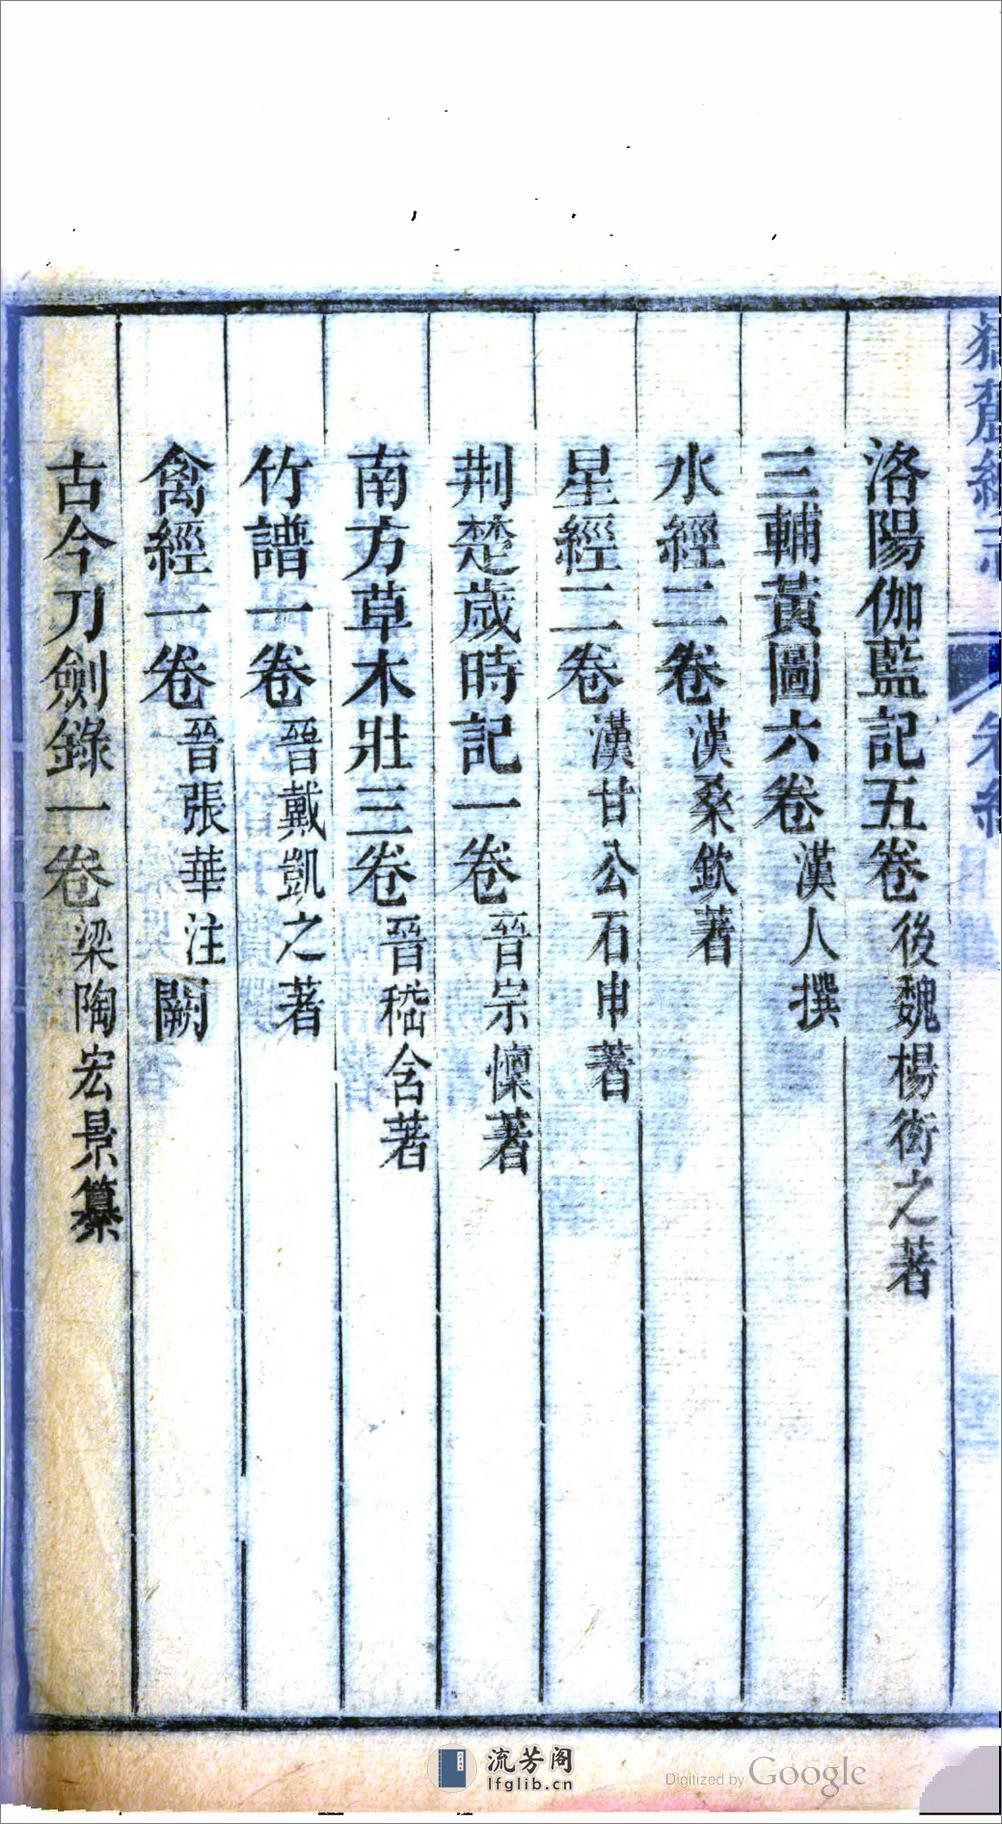 洛陽伽藍記五卷後魏楊衒之著
三輔黃圖六卷漢人撰
水經二卷漢桑欽著
星經二卷漢甘公石申著
荆楚歲時記一卷晉宗懍著
南方草木壯三卷晉嵇含著
竹譜一卷晉戴凱之著
禽經一卷晉張華注闕
古今刀劍錄一卷梁陶宏景纂
流芳阁
lfglib.cn
Digitized by Google